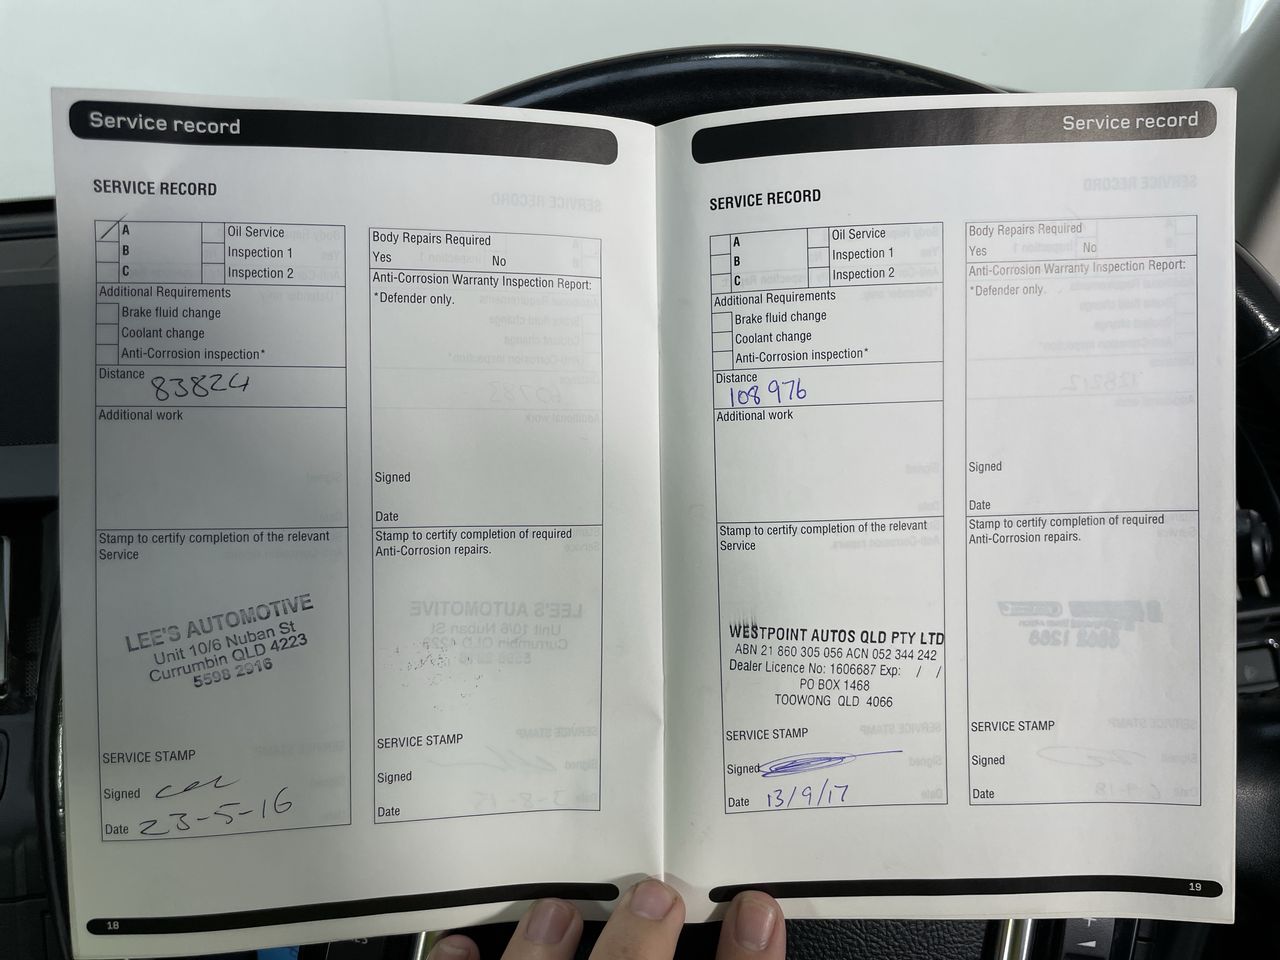 Service record
SERVICE RECORD
A
B
C
Oil Service
Inspection 1
Inspection 2
Additional Requirements
Brake fluid change
Coolant change
Anti-Corrosion inspection*
Distance
83824
Additional work
Stamp to certify completion of the relevant
Service
LEE'S AUTOMOTIVE
Unit 10/6 Nuban St
Currumbin QLD 4223
5598 2916
SERVICE STAMP
Signed
Date 23-5-16
Body Repairs Required
Yes No
Anti-Corrosion Warranty Inspection Report:
*Defender only.
Signed
Date
Stamp to certify completion of required
Anti-Corrosion repairs.
SERVICE STAMP
Signed
Date
18
Service record
SERVICE RECORD
A
B
C
Oil Service
Inspection 1
Inspection 2
Additional Requirements
Brake fluid change
Coolant change
Anti-Corrosion inspection*
Distance
108 976
Additional work
Stamp to certify completion of the relevant
Service
WESTPOINT AUTOS QLD PTY LTD
ABN 21 860 305 056 ACN 052 344 242
Dealer Licence No: 1606687 Exp: / /
PO BOX 1468
TOOWONG QLD 4066
SERVICE STAMP
Signed
Date 13/9/17
Body Repairs Required
Yes No
Anti-Corrosion Warranty Inspection Report:
*Defender only.
Signed
Date
Stamp to certify completion of required
Anti-Corrosion repairs.
SERVICE STAMP
Signed
Date
19